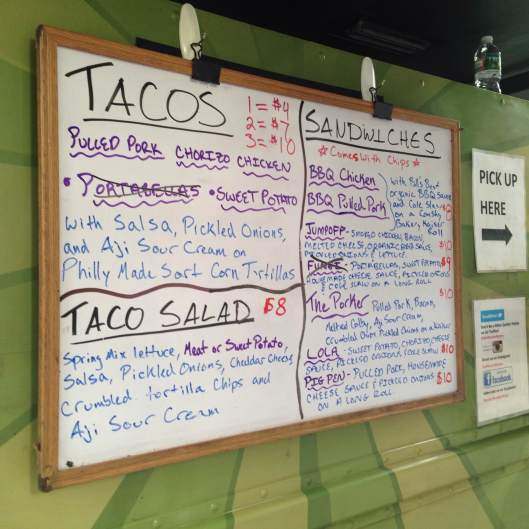 TACOS
1 = $4
2 = $7
3 = $10
PULLED PORK CHORIZO CHICKEN
• PORTABELLAS • SWEET POTATO
with Salsa, Pickled Onions,
and Aji Sour Cream on
Philly Made Soft Corn Tortillas
TACO SALAD $8
Spring Mix lettuce, Meat or Sweet Potato,
Salsa, Pickled Onions, Cheddar Cheese,
Crumbled tortilla Chips and
Aji Sour Cream
SANDWICHES
Comes With Chips
BBQ Chicken
BBQ Pulled Pork
with
organic BBQ Sauce
and Cole Slaw
on a
Bakery Kaiser
Roll
JUMPOFF - SMOKED CHICKEN, BACON,
MELTED CHEESE, ORGANIC BBQ SAUCE, $10
PICKLED ONIONS & LETTUCE.
PORTABELLA, SWEET POTATO, $9
HOUSEMADE CHEESE SAUCE, PICKLED ONIONS
& COLE SLAW ON A LONG ROLL
The Porker Pulled Pork, Bacon, $10
Melted Colby, Aji Sour Cream,
Crumbled Chips Pickled Onions on a Kaiser
LOLA - SWEET POTATO, CHORIZO, CHEESE
SAUCE, PICKLED ONIONS, COLE SLAW $10
PIG PEN - PULLED PORK, HOUSEMADE
CHEESE SAUCE & PICKLED ONIONS $10
ON A LONG ROLL
PICK UP
HERE
facebook